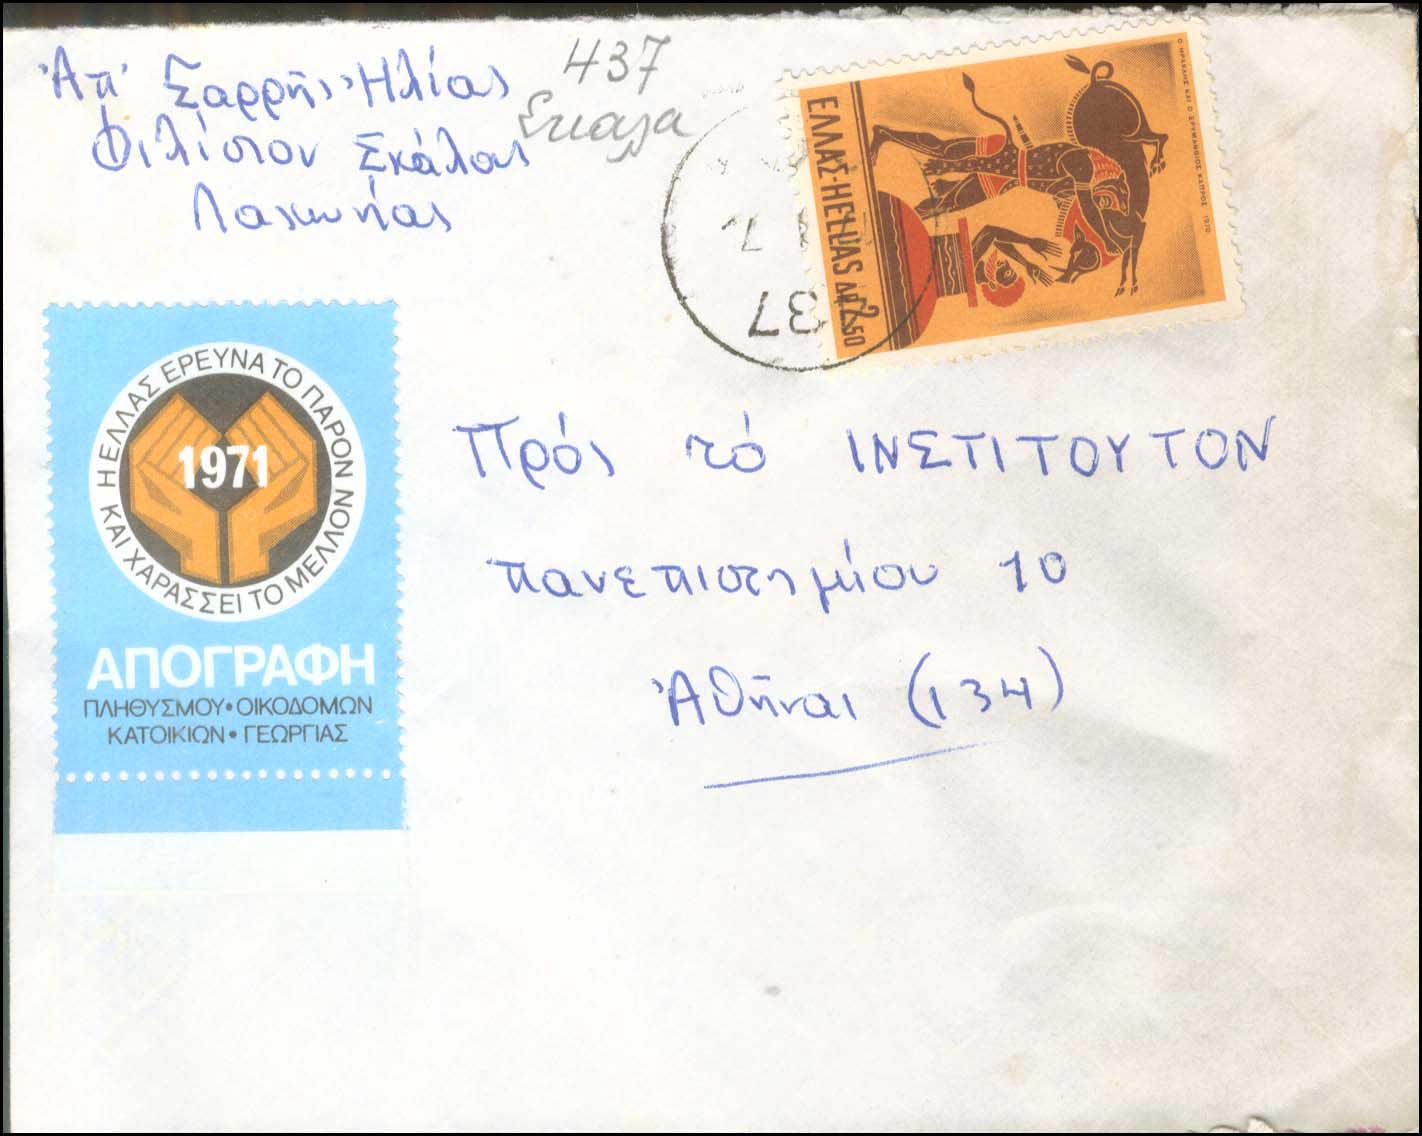 Ἀπ' Σαρρῆς Ἠλίας
Φιλίσιον Σκάλας
Λακωνίας
437
Σκαλα
ΕΛΛΑΣ-HELLAS ΔΡ 2,50
Ο ΗΡΑΚΛΗΣ ΚΑΙ Ο ΕΡΥΜΑΝΘΙΟΣ ΚΑΠΡΟΣ 1970
Η ΕΛΛΑΣ ΕΡΕΥΝΑ ΤΟ ΠΑΡΟΝ
ΚΑΙ ΧΑΡΑΣΣΕΙ ΤΟ ΜΕΛΛΟΝ
1971
ΑΠΟΓΡΑΦΗ
ΠΛΗΘΥΣΜΟΥ • ΟΙΚΟΔΟΜΩΝ
ΚΑΤΟΙΚΙΩΝ • ΓΕΩΡΓΙΑΣ
Πρός τό ΙΝΣΤΙΤΟΥΤΟΝ
πανεπιστημίου 10
Ἀθῆναι (134)